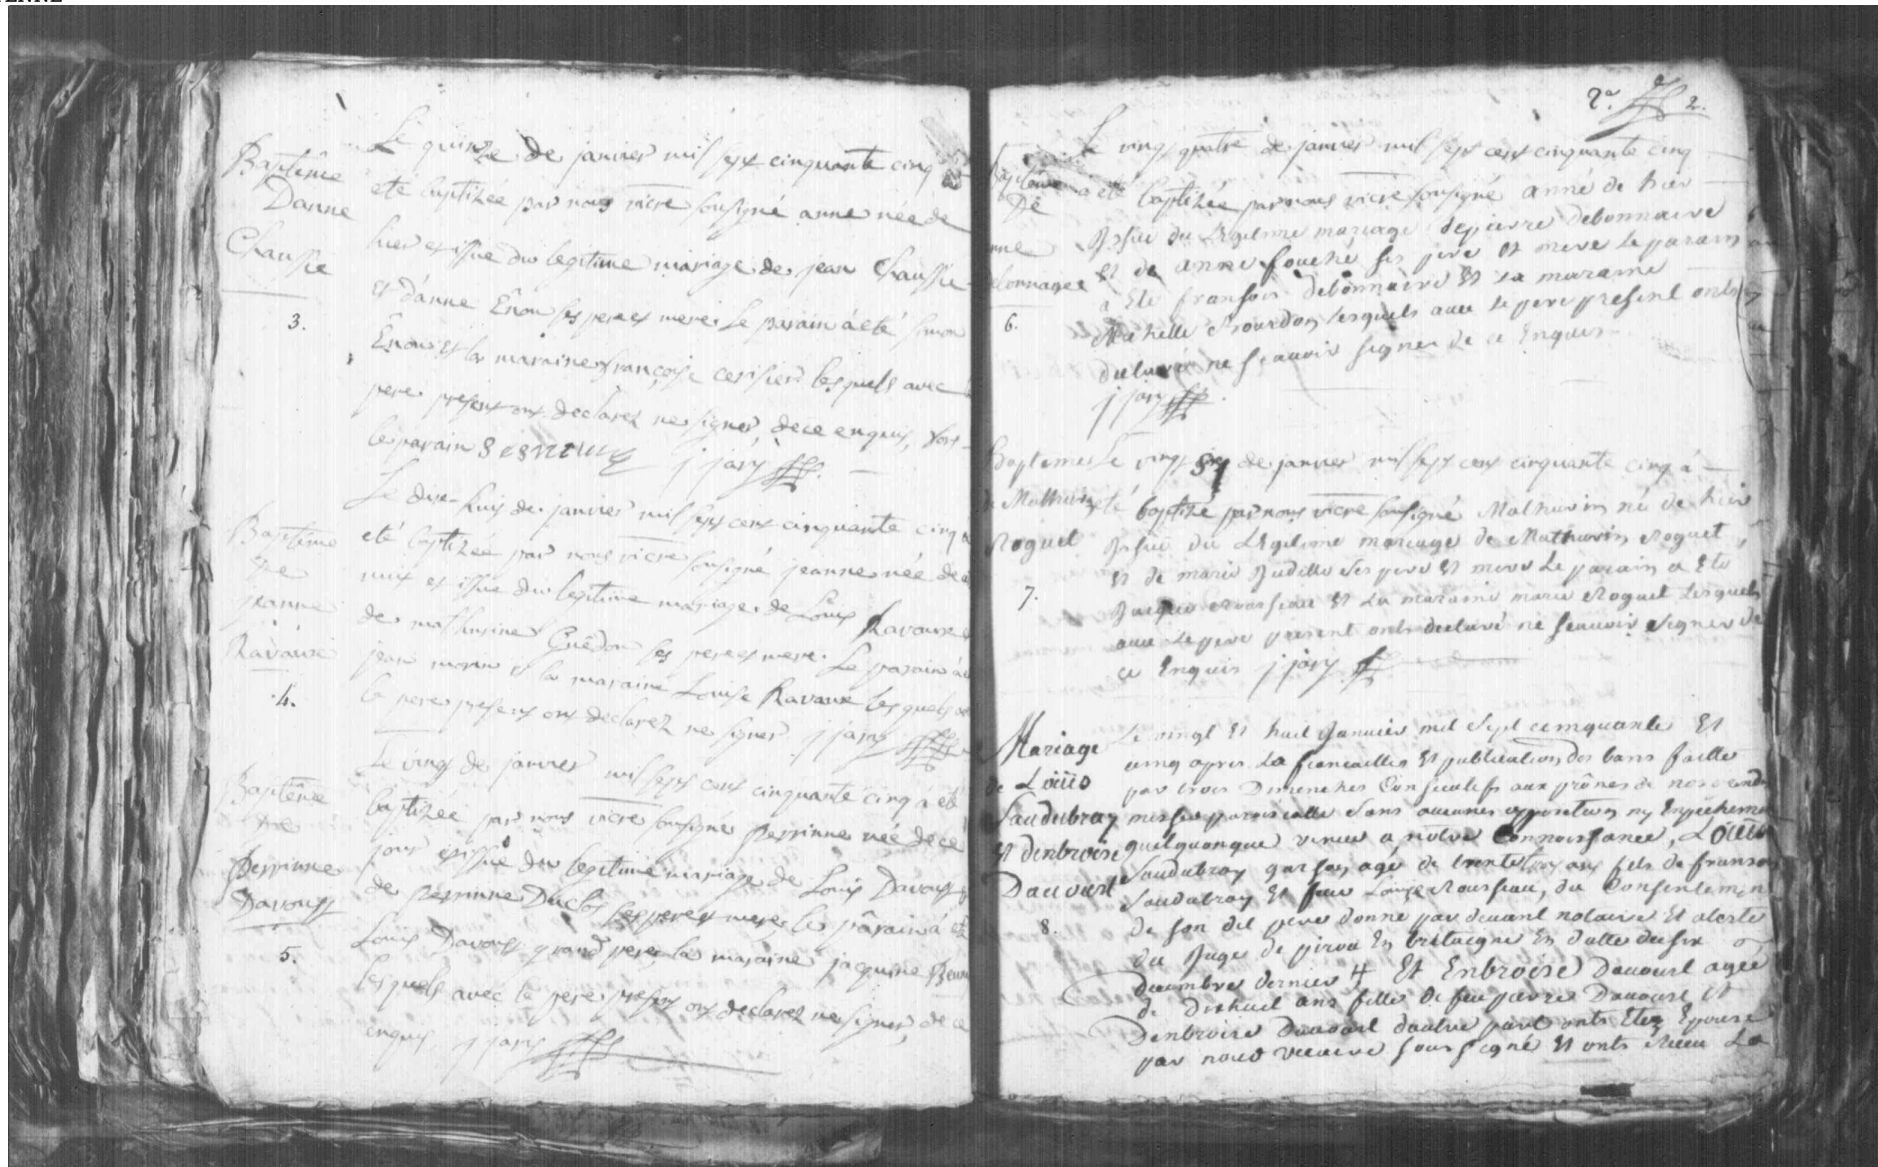 Baptême
Danne
Chaussée
3.
Le quinze de janvier mil sept cinquante cinq à
eté baptizée par nous vicre sousigné anne née de
hier et issüe du legitime mariage de jean Chaussée
et d'anne Énon ses pere et mere le parain à eté simon
Énon et la maraine françoise cerisier lesquels avec
pere present ont declarez ne signer, dece enquis, fors
le parain j jary
Baptême
De
jeanne
Ravaux
4.
Le dix-huit de janvier mil sept cent cinquante cinq a
eté baptizée par nous vicre sousigné jeanne née de
nuit et issüe du legitime mariage de Loüis Ravaux
de mathurine Guédon ses pere et mere. Le parain à
jean morin et la maraine Loüise Ravaux lesquels
le pere present ont declarez ne signer j jary
Baptême
De
Perrinne
Davoust
5.
Le vingt de janvier mil sept cent cinquante cinq à eté
baptizée par nous vicre sousigné perrinne née de ce
jour et issüe du legitime mariage de Loüis Davoust
de perrinne Duclos ses pere et mere le parain à eté
Loüis Davoust grand pere la maraine jaquine
lesquels avec le pere present ont declarez ne signer, de ce
enquis j jary
2e. 2.
Baptême
De
nne
ebonnaire
6.
Le vingt quatre de janvier mil sept cent cinquante cinq
a eté baptizée par nous vicre sousigné anne de hier
Issue du Legitime mariage de pierre debonnaire
Et de anne fouché ses pere Et mere Le parain
a Ete fransois debonnaire Et La maraine
Michelle Bourdon lesquels avec Le pere present onts
declaré ne scauoir signer de ce Enquis
j jary
Baptême
de Mathurin
Roguet
7.
Le vingt de janvier mil sept cent cinquante cinq à
eté baptizé par nous vicre sousigné Mathurin né de hier
Issue du LEgitime mariage de Mathurin Roguet
Et de marie Judille ses pere Et mere Le parain a Ete
Jacque Rousseau Et La maraine marie Roguet Lesquels
avec Le pere present onts declaré ne scauoir Signer de
ce Enquis j jary
Mariage
de Loüis
Saudubray
Et Denbroise
Davoust
8.
Le vingt Et huit Janvier mil Sept cemquante Et
cinq apres La fiancailles Et publication des bans faitte
par trois Dimenches Consecutifs aux prônes de nos grandes
messe paroissialle Sans aucunes opposition ny Enpechement
quelquonque venue a notre Connoissance, Loüis
Saudubray garson age de trente trois ans fils de fransois
Saudubray Et feue Louise Rousseau, du Consentement
de son dit pere donne par devant notaire Et
du Juge de pirou En bretaigne En datte du six
decembre dernier Et Enbroise Davoust agee
de Dixhuit ans fille de feu pierre Davoust Et
Denbroise Davoust dautre part onts Etez Epousé
par nous vicaire sous signé Et onts Receu La